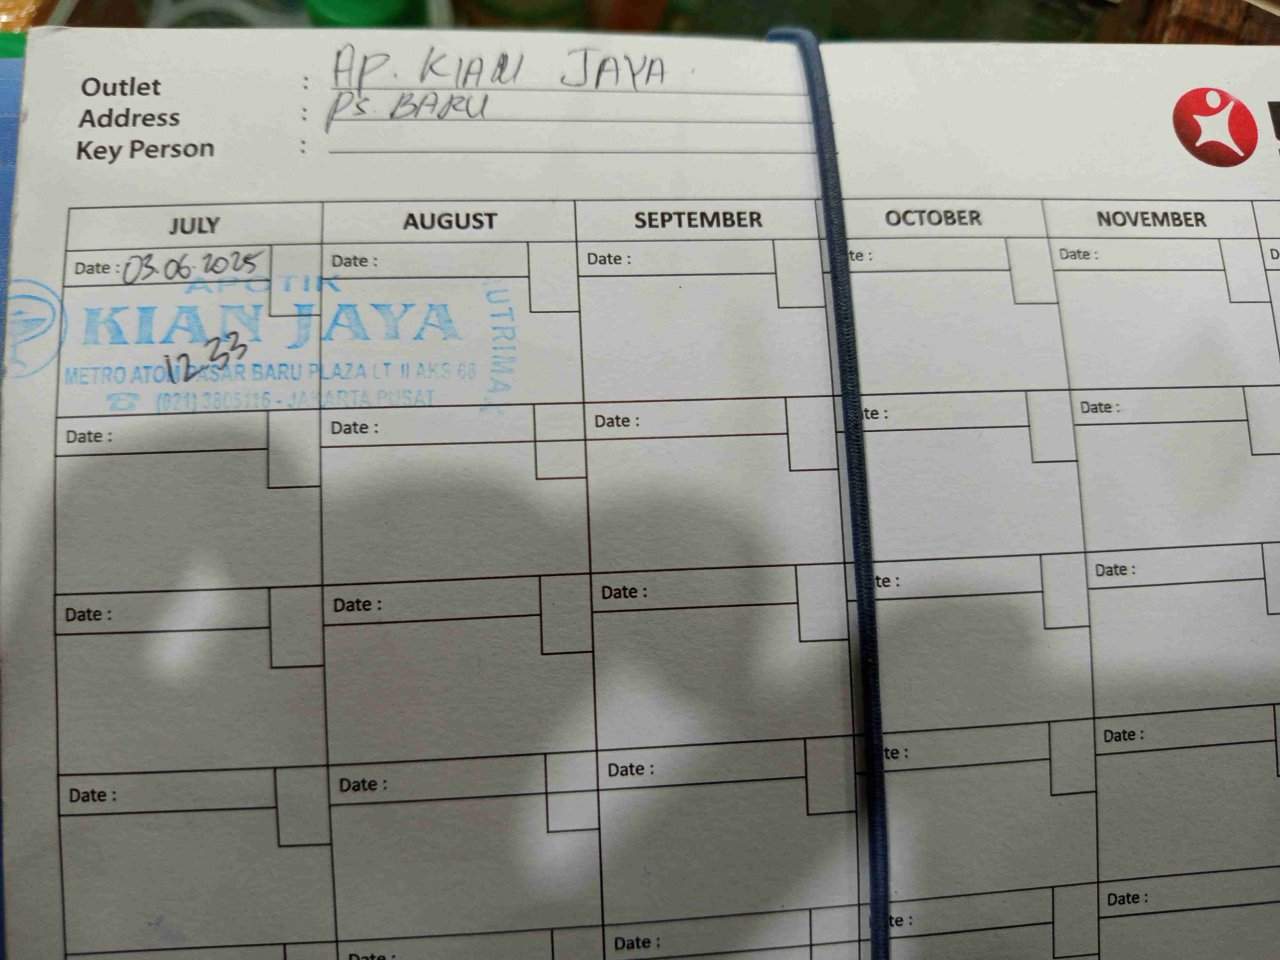 Outlet : AP. KIAN JAYA
Address : PS. BARU
Key Person :
JULY AUGUST SEPTEMBER OCTOBER NOVEMBER
Date : 03.06.2025 Date : Date : te : Date :
APOTIK
KIAN JAYA
12.33
METRO ATOM PASAR BARU PLAZA LT II AKS 68
JAKARTA PUSAT
UTRIMA
Date : Date : Date : te : Date :
Date : Date : Date : te : Date :
Date : Date : Date : te : Date :
Date : Date : te : Date :